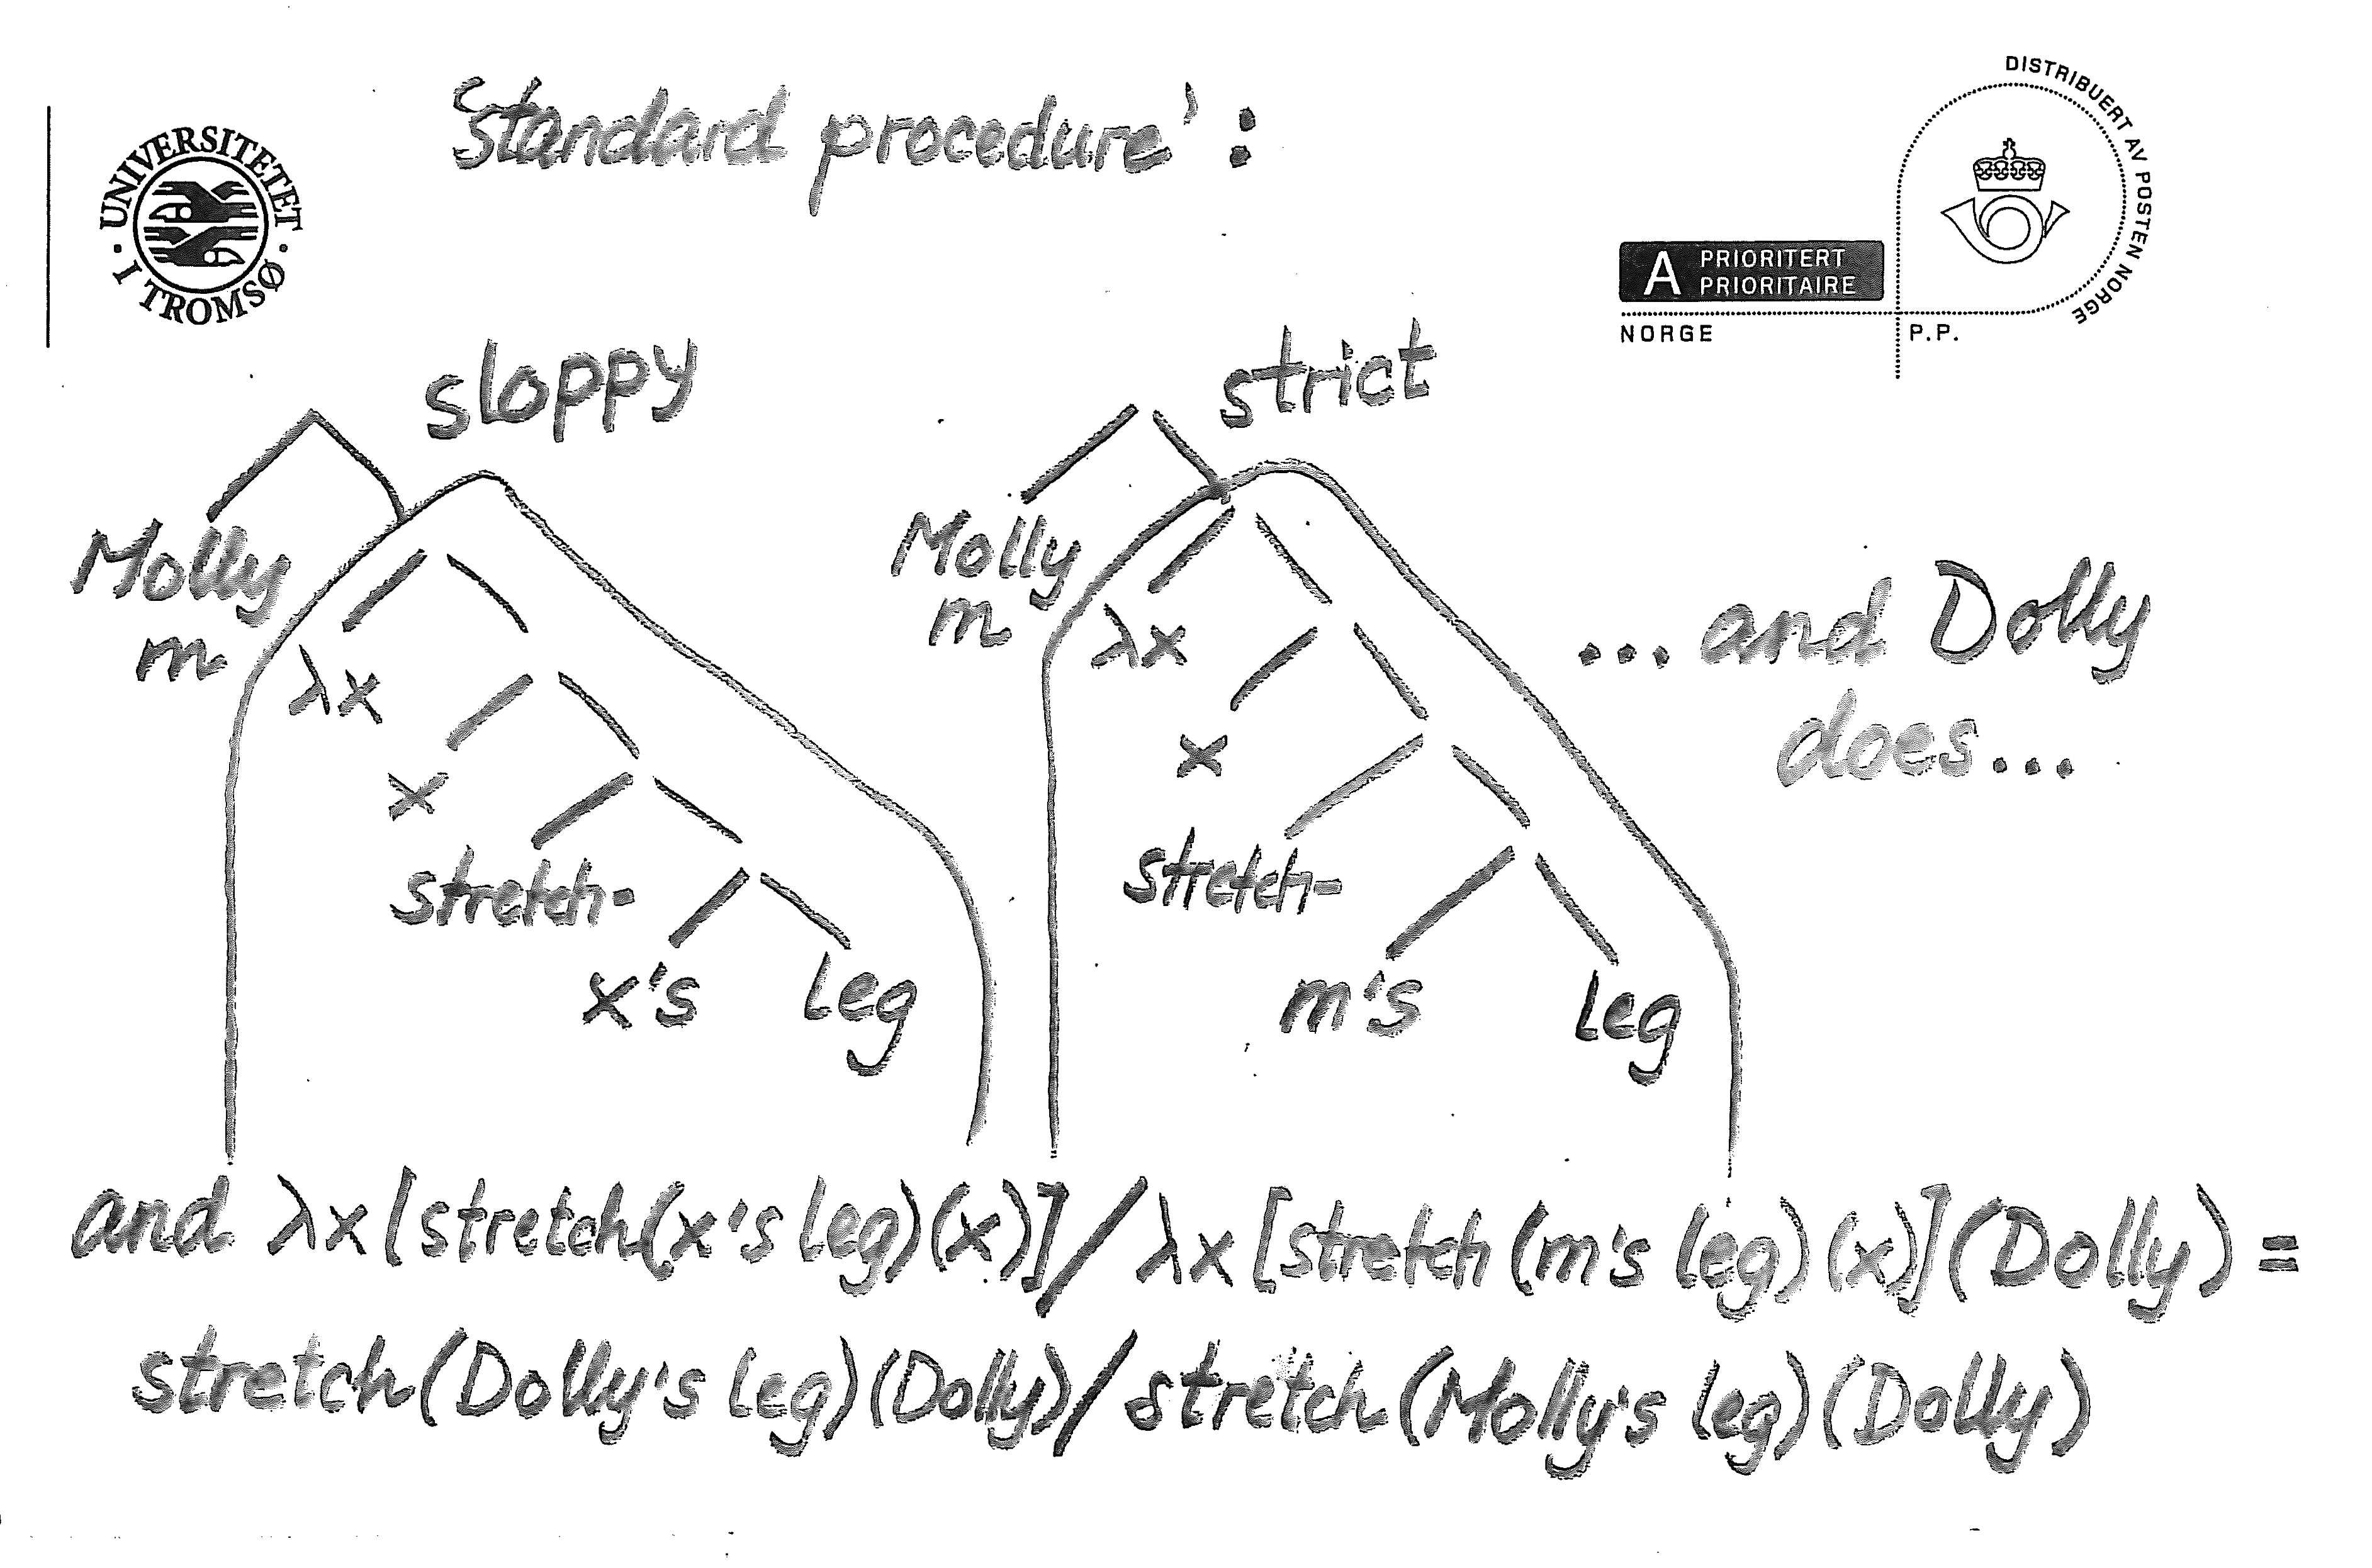 'Standard procedure':
UNIVERSITETET I TROMSØ
DISTRIBUERT AV POSTEN NORGE
A PRIORITERT
PRIORITAIRE
NORGE
P.P.
sloppy
strict
Molly
m
λx
x
stretch-
x's leg
Molly
m
λx
x
stretch-
m's leg
...and Dolly
does...
and λx[stretch(x's leg)(x)]/λx[stretch(m's leg)(x)](Dolly)=
stretch(Dolly's leg)(Dolly)/stretch(Molly's leg)(Dolly)